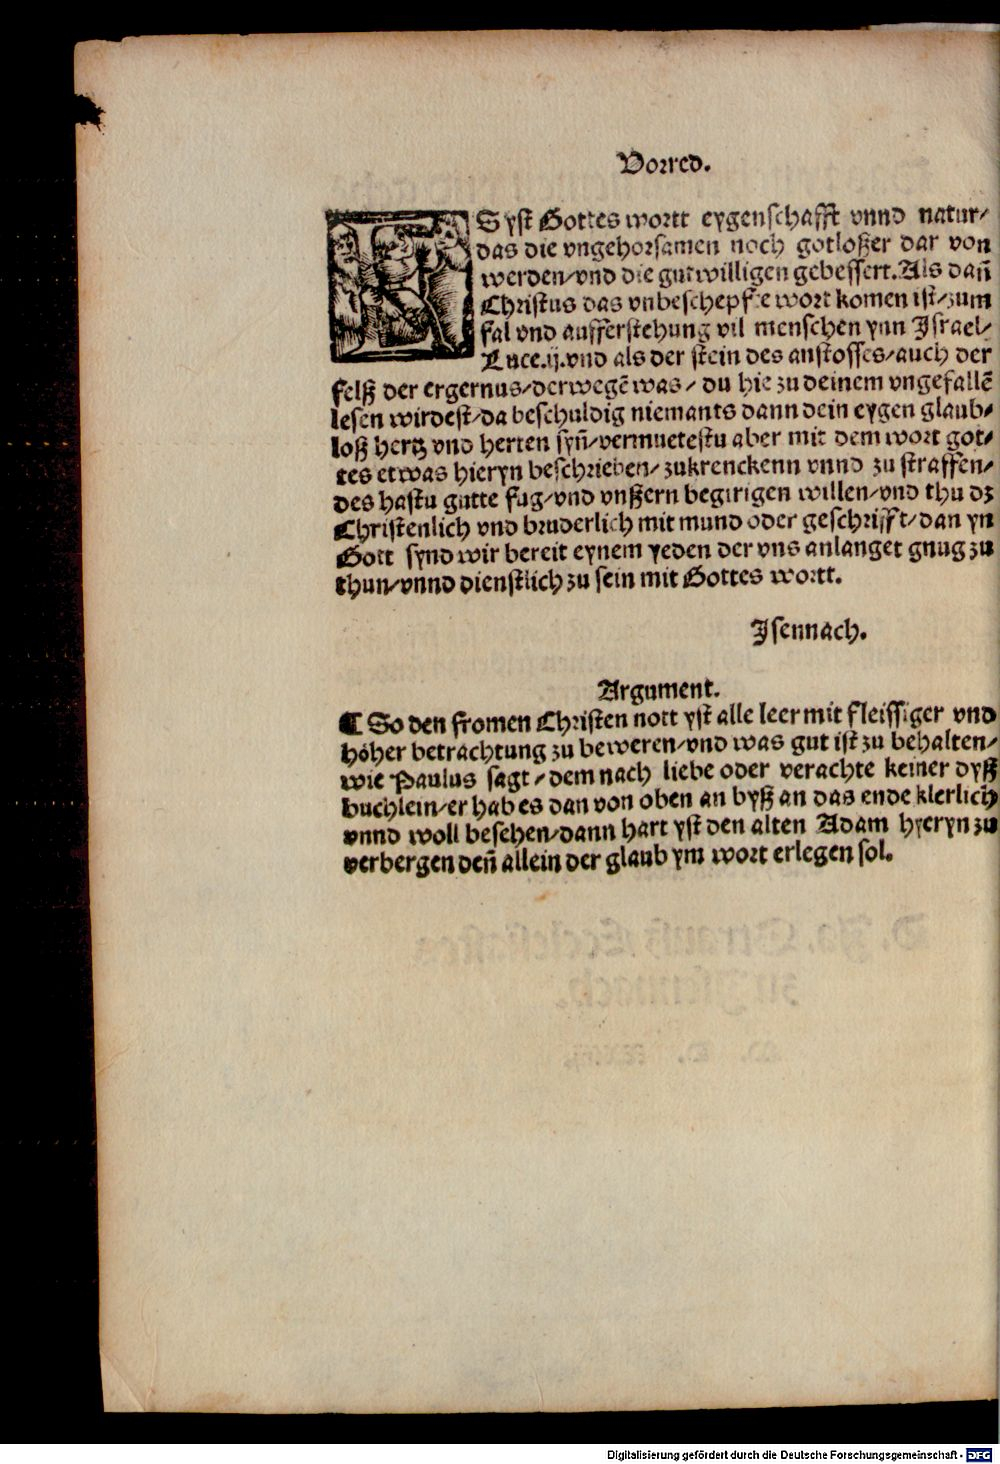 Vorred.
ES yst Gottes wortt eygenschafft vnnd natur/
das die vngehorsamen noch gotloßer dar von
werden/vnd die gutwilligen gebessert. Als dan̄
Christus das vnbeschepffe wort komen ist/zum
fal vnd aufferstehung vil menschen ynn Israel/
Luce.ij.vnd als der stein des anstosses/auch der
felß der ergernus/derwegē was/ du hie zu deinem vngefallē
lesen wirdest/da beschuldig niemants dann dein eygen glaub/
loß hertz vnd herten syn̄/vermuetestu aber mit dem wort got/
tes etwas hieryn beschrieben/ zukrenckenn vnnd zu straffen/
des hastu gutte fug/vnd vnßern begirigen willen/vnd thu dz
Christenlich vnd bruderlich mit mund oder geschrifft/dan yn
Gott synd wir bereit eynem yeden der vns anlanget gnug zu
thun/vnnd dienstlich zu sein mit Gottes wortt.
Isennach.
Argument.
¶ So den fromen Christen nott yst alle leer mit fleissiger vnd
hóher betrachtung zu beweren/vnd was gut ist zu behalten/
wie Paulus sagt/ dem nach liebe oder verachte keiner dyß
buchlein/er hab es dan von oben an byß an das ende klerlich
vnnd woll besehen/dann hart yst den alten Adam hyeryn zu
verbergen den̄ allein der glaub ym wort erlegen sol.
Digitalisierung gefördert durch die Deutsche Forschungsgemeinschaft - DFG